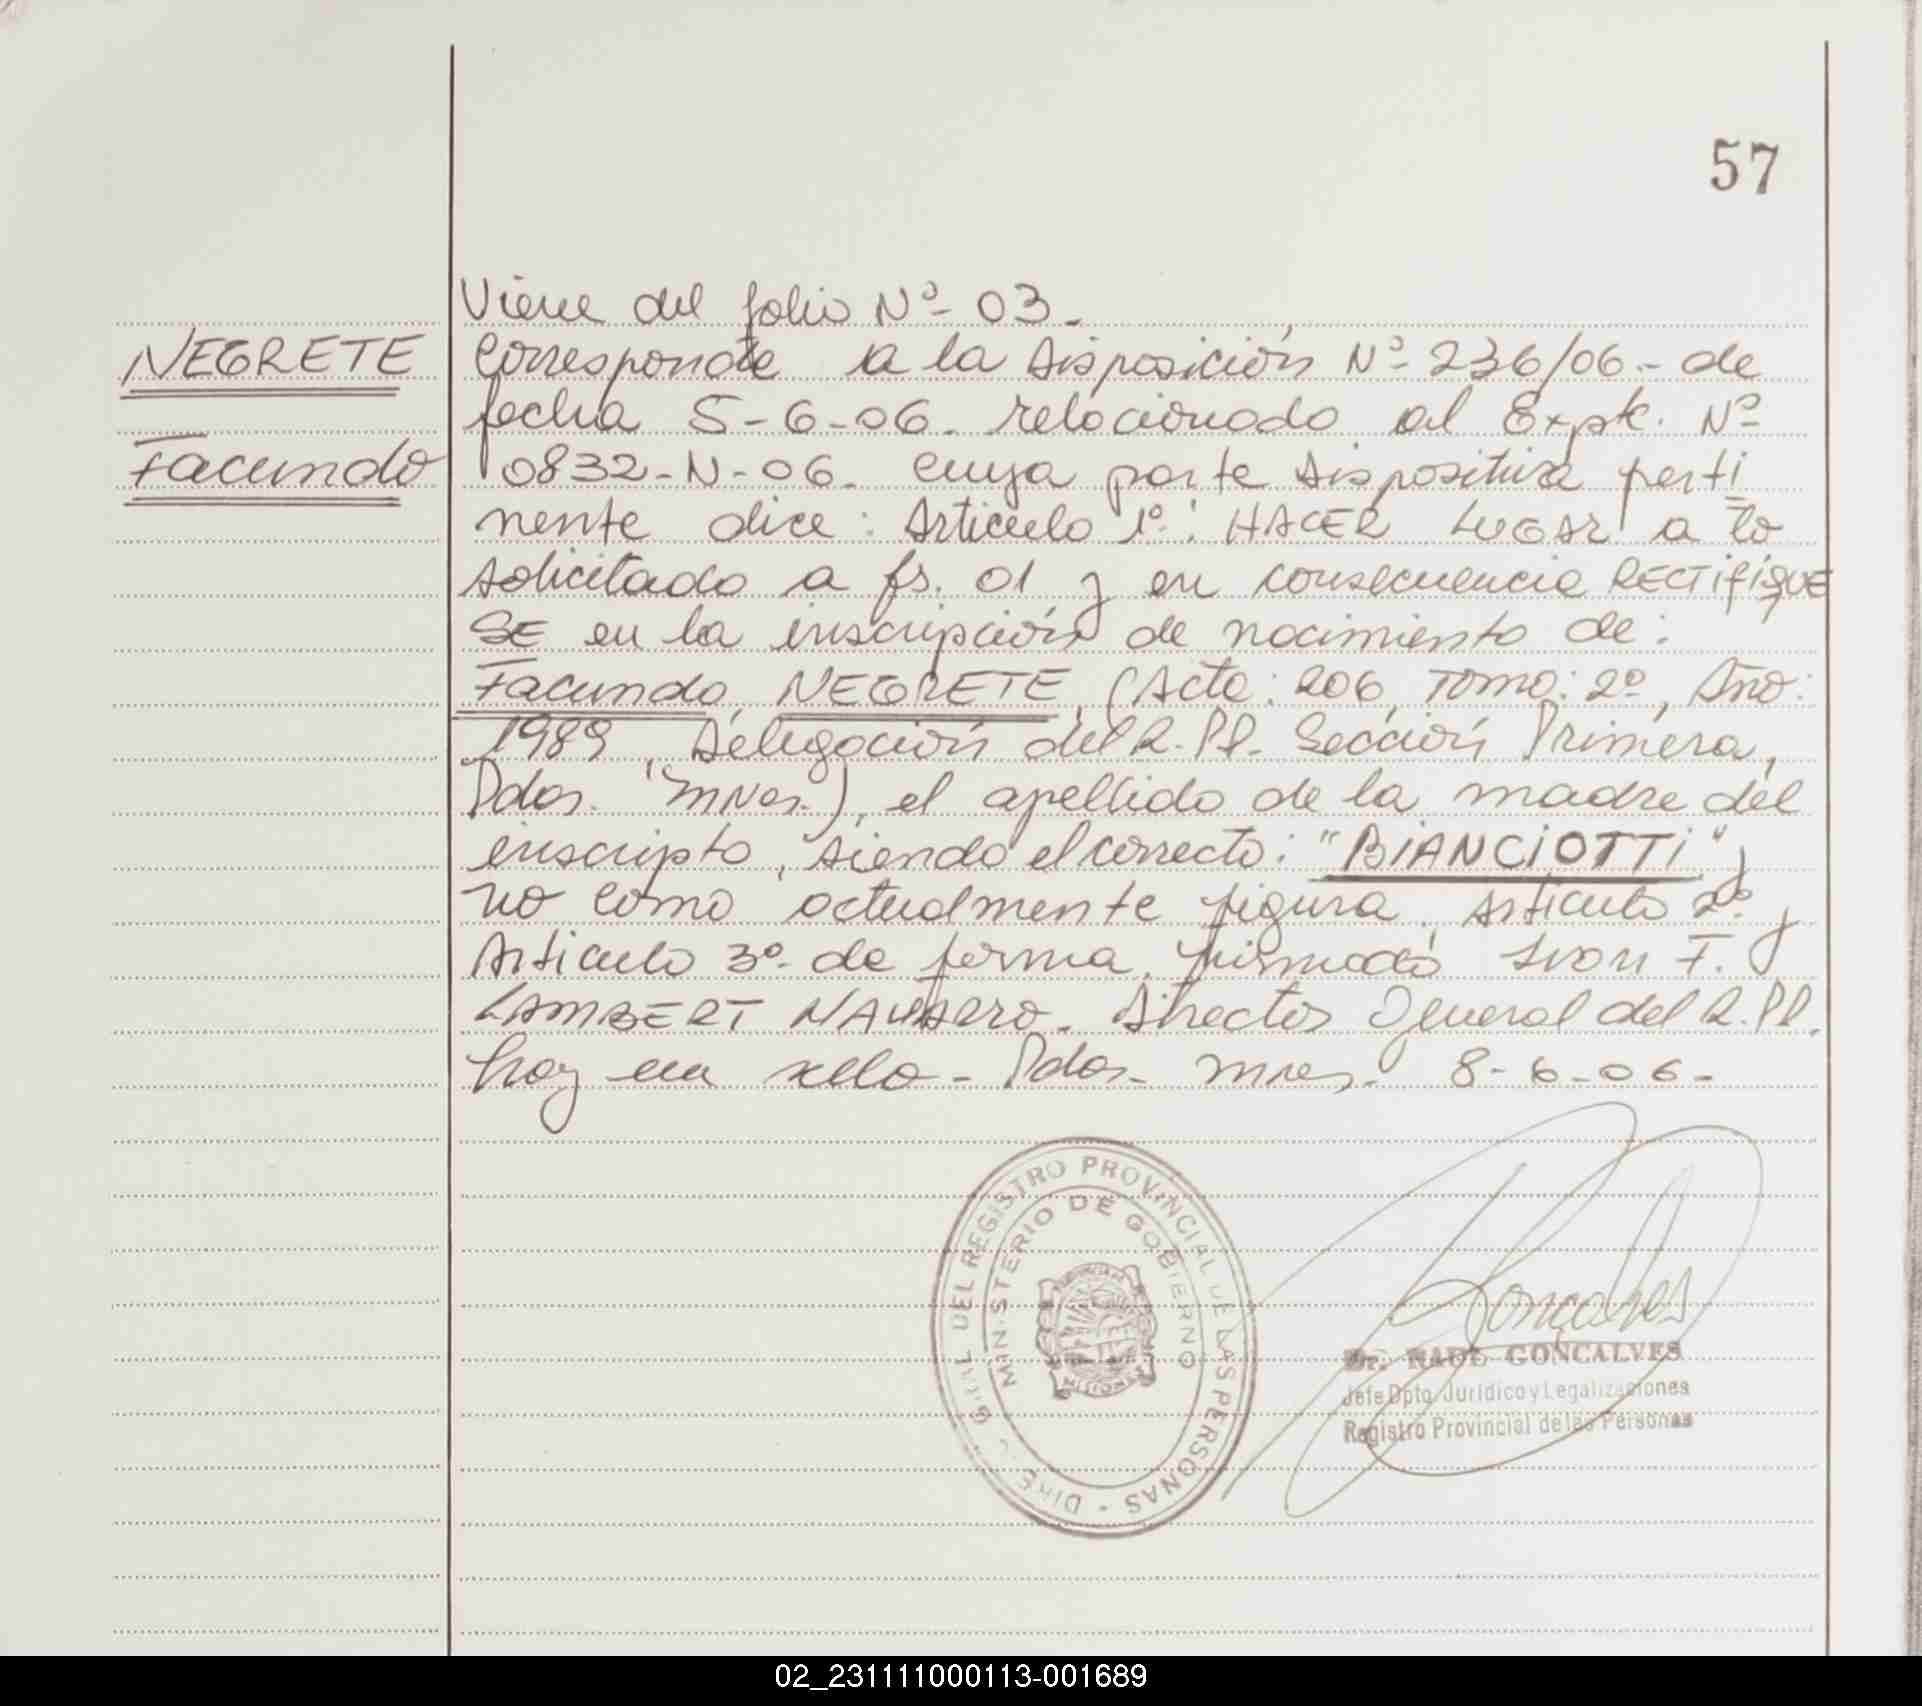 57
Viene del folio Nº- 03.
NEGRETE
Corresponde a la Disposición Nº- 236/06.- de
fecha 5-6-06. relacionado al Expte. Nº
Facundo
0832-N-06. cuya parte dispositiva perti
nente dice: Articulo 1º: HACER LUGAR a lo
solicitado a fs. 01 y en consecuencia RECTIFIQUE
SE en la inscripción de nacimiento de:
Facundo NEGRETE, (Acta: 206, Tomo: 2º, Año:
1989, Delegación del R.PP. Sección Primera,
Pdas. Mnes.), el apellido de la madre del
inscripto, siendo el correcto: "BIANCIOTTI" y
no como actualmente figura. Articulo 2º y
Articulo 3º- de forma. firmado Ivon F.
LAMBERT NAVARRO. Director General del R.PP.
hay un sello- Pdas- Mnes.- 8-6-06-
DIREC. GRAL DEL REGISTRO PROVINCIAL DE LAS PERSONAS -
MINISTERIO DE GOBIERNO
PROVINCIA DE MISIONES
Goncalves
Dr. RAUL GONCALVES
Jefe Dpto. Jurídico y Legalizaciones
Registro Provincial de las Personas
02_231111000113-001689